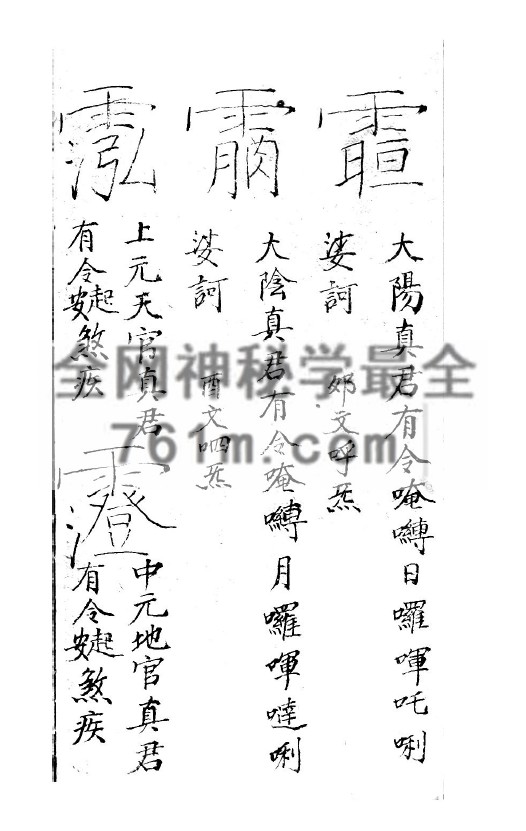 大陽真君有令唵嚩日囉喗吒唎
娑訶
文呼炁
大陰真君有令唵嚩月囉喗噠唎
娑訶
酉文呬炁
上元天官真君
有令安起煞疾
中元地官真君
有令安起煞疾
全网神秘学最全
761m.com